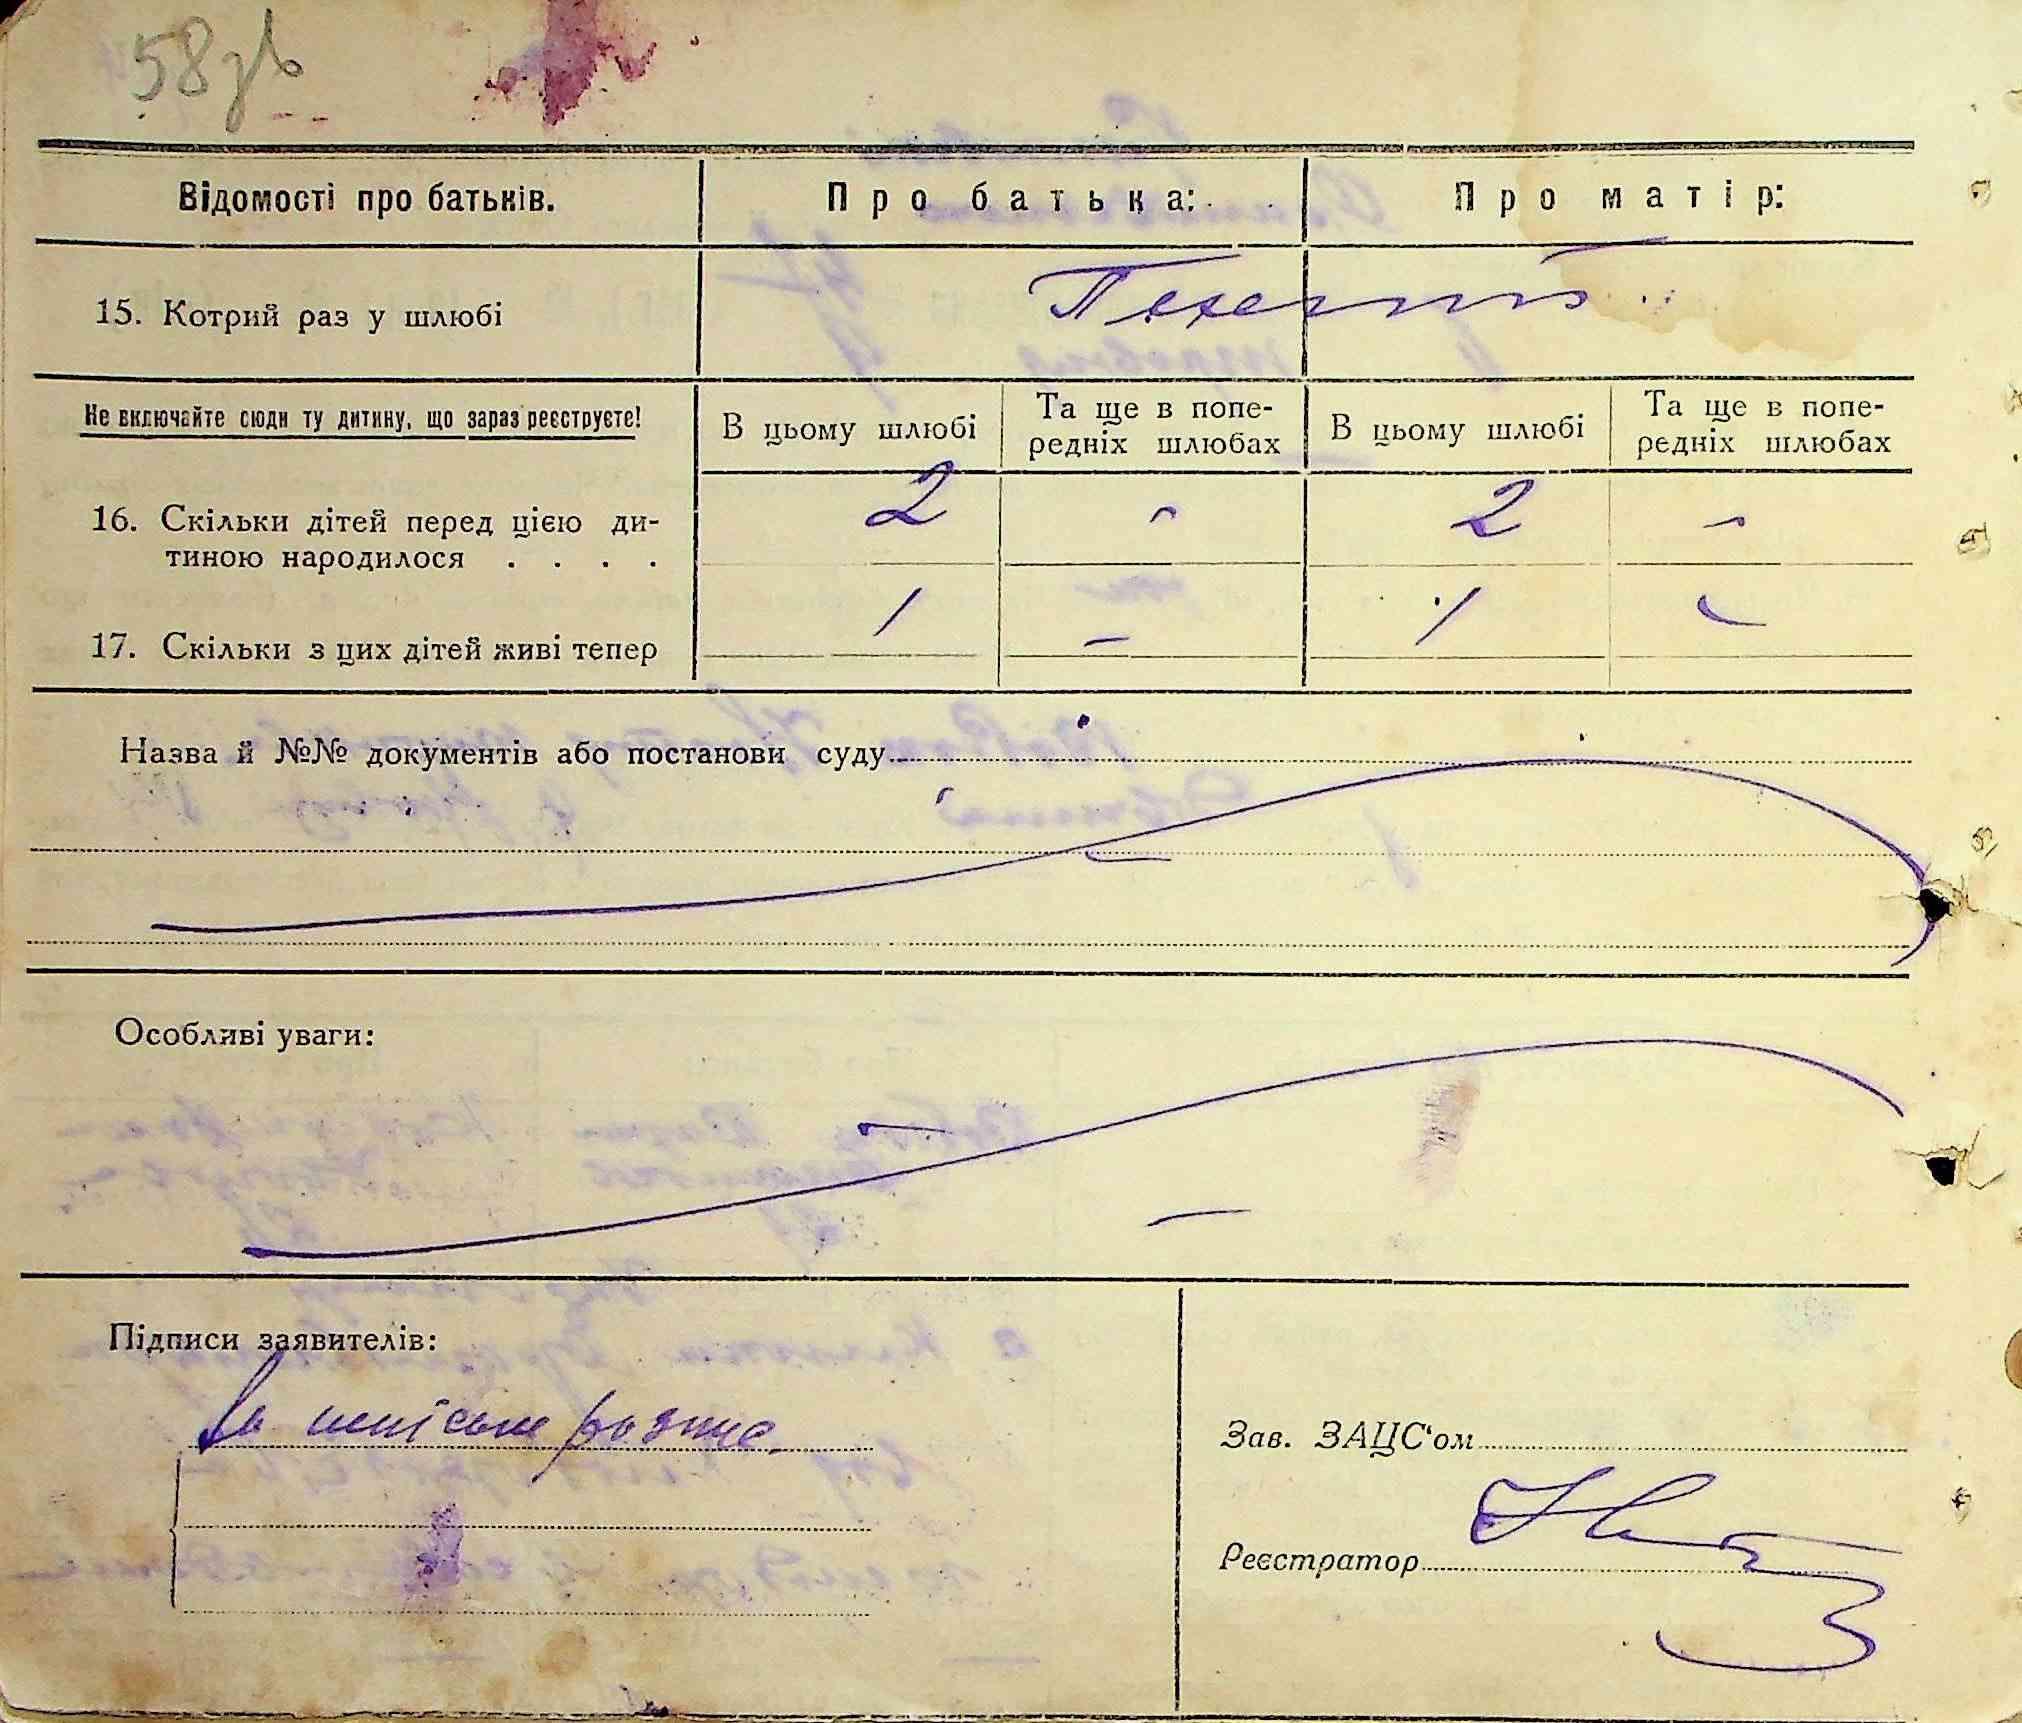 58 зв
Відомості про батьків.
Про батька:
Про матір:
15. Котрий раз у шлюбі
Не включайте сюди ту дитину, що зараз реєструєте!
В цьому шлюбі
Та ще в попе-
редніх шлюбах
В цьому шлюбі
Та ще в попе-
редніх шлюбах
16. Скільки дітей перед цією ди-
тиною народилося . . . .
2
-
2
-
17. Скільки з цих дітей живі тепер
1
-
1
-
Назва й №№ документів або постанови суду
Особливі уваги:
Підписи заявителів:
Зав. ЗАЦС'ом
Реєстратор